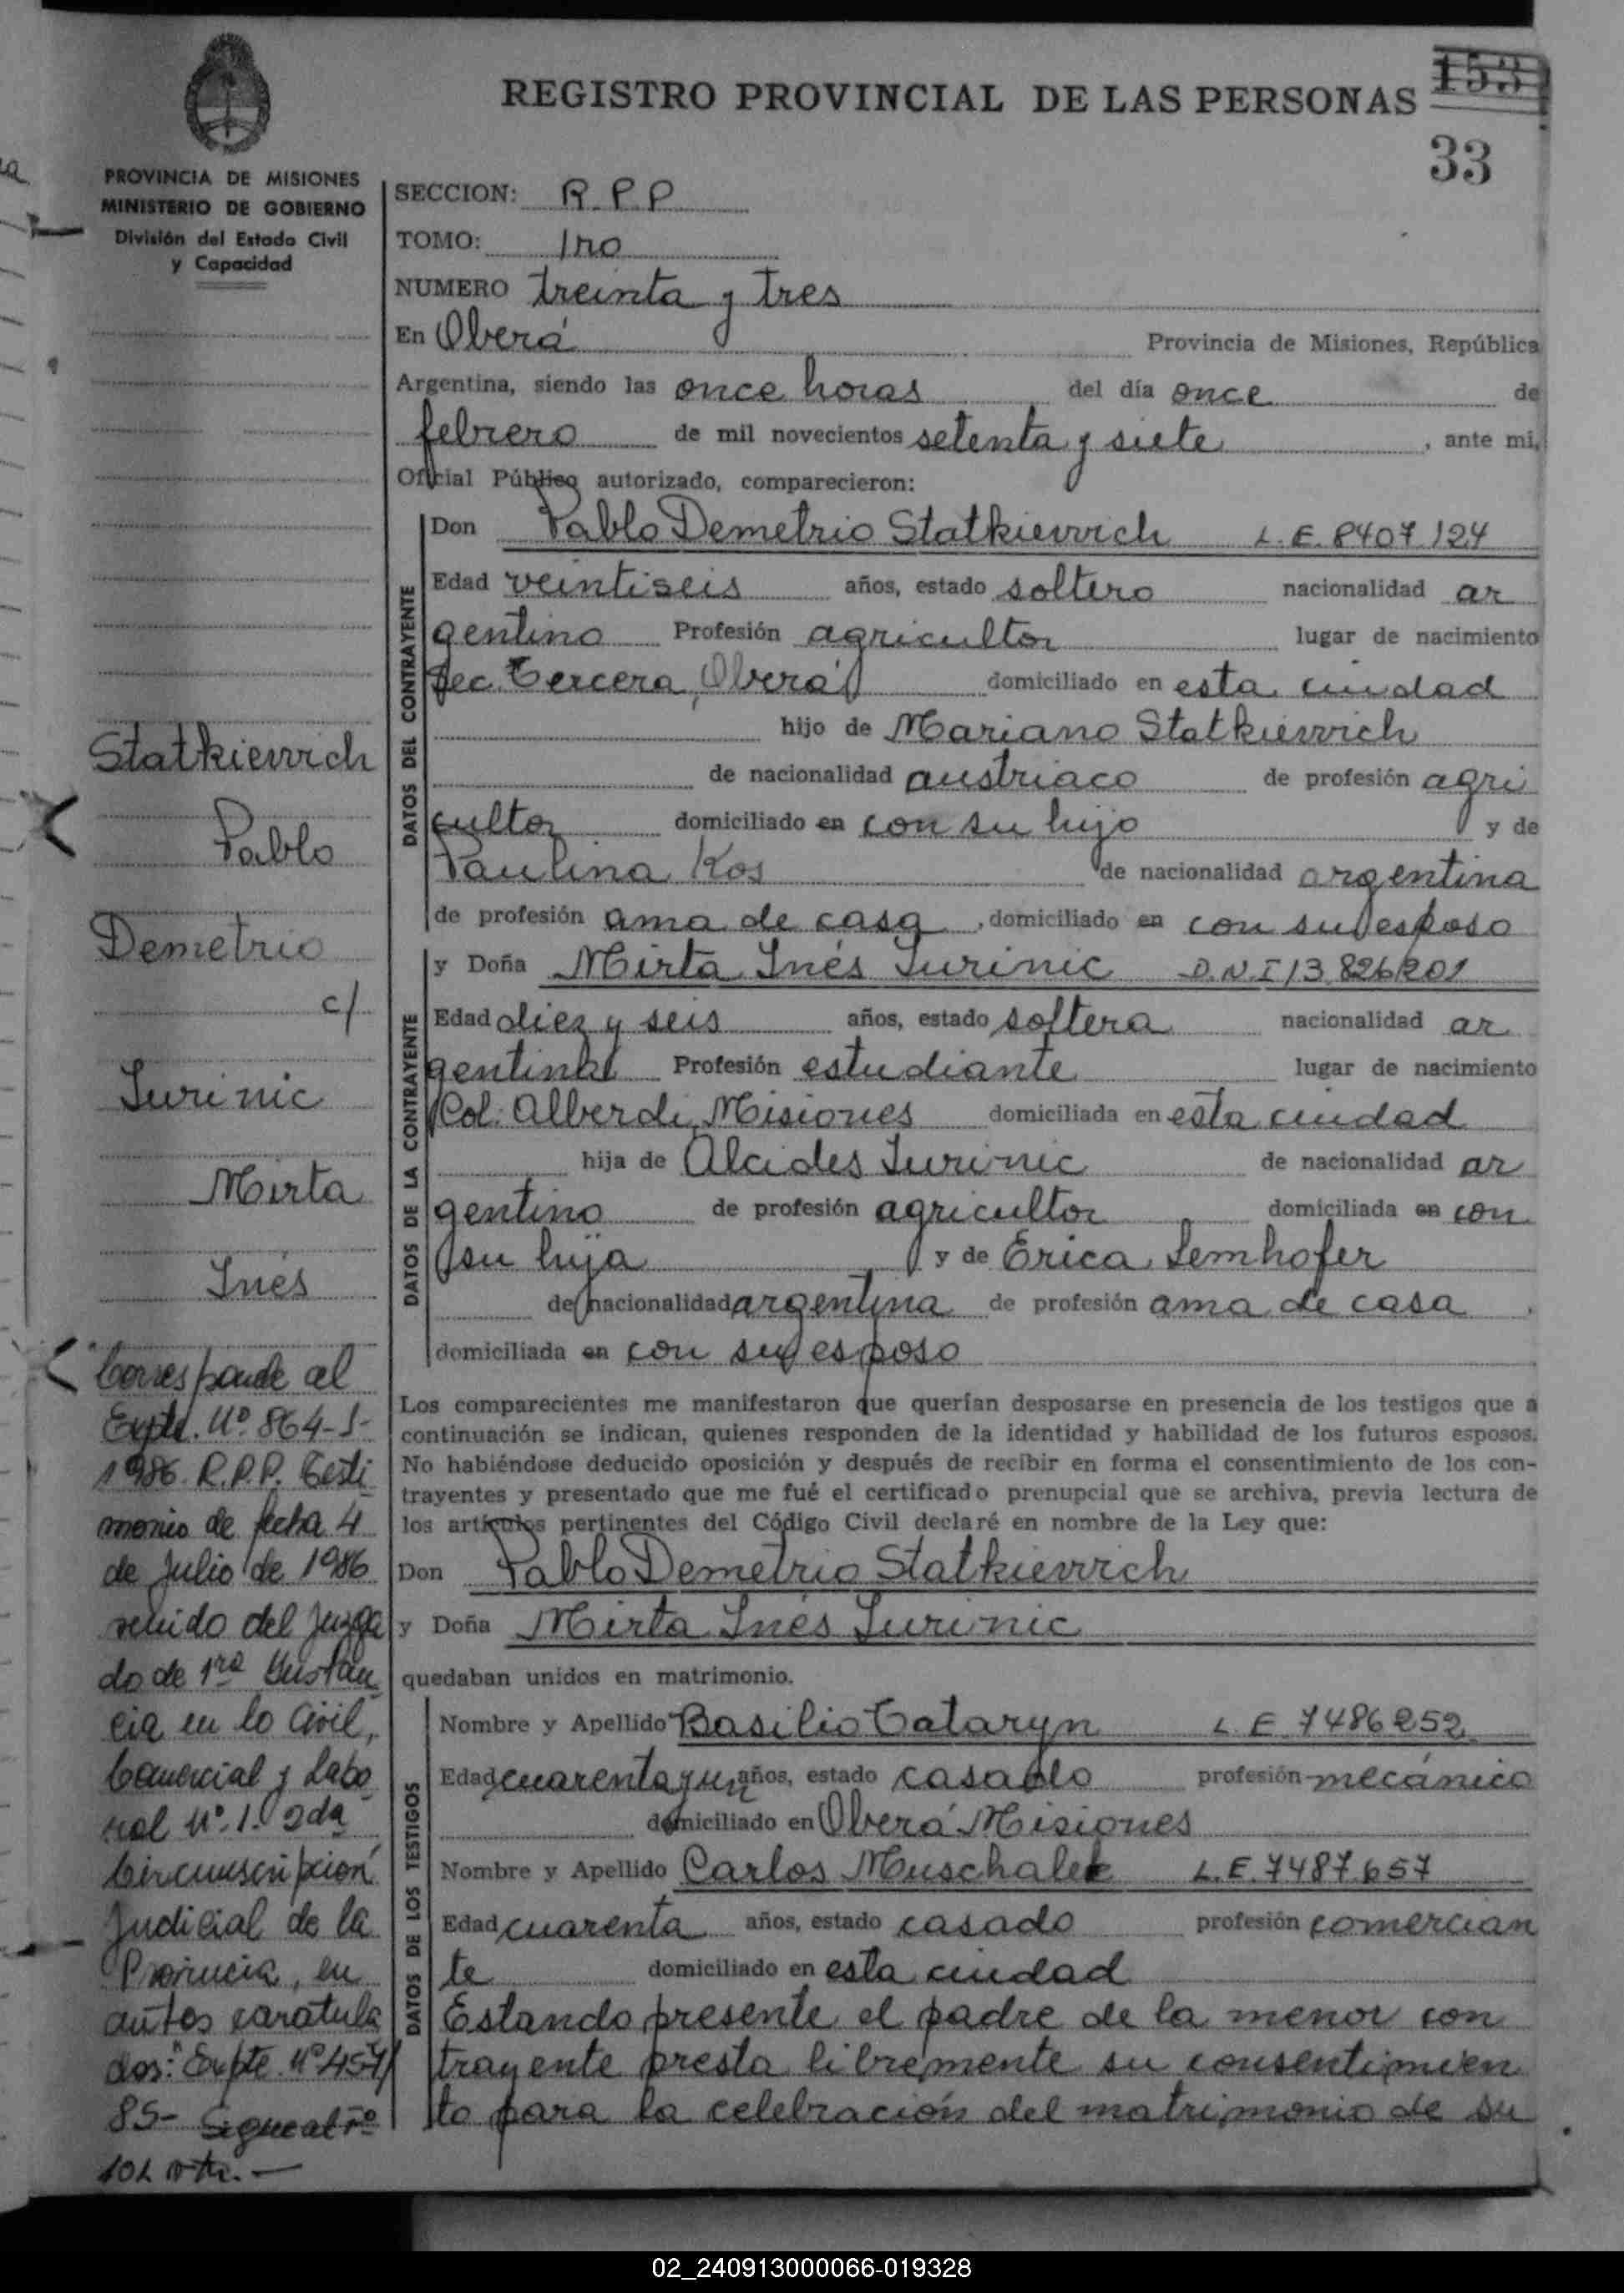 REGISTRO PROVINCIAL DE LAS PERSONAS
153
33
PROVINCIA DE MISIONES
MINISTERIO DE GOBIERNO
División del Estado Civil
y Capacidad
SECCION: R.P.P
TOMO: 1ro
NUMERO treinta y tres
En Oberá Provincia de Misiones, República
Argentina, siendo las once horas del día once de
febrero de mil novecientos setenta y siete, ante mi,
Oficial Público autorizado, comparecieron:
DATOS DEL CONTRAYENTE
Don Pablo Demetrio Statkievvich L.E. 8407124
Edad veintiseis años, estado soltero nacionalidad ar
gentino Profesión agricultor lugar de nacimiento
Sec. Tercera, Oberá domiciliado en esta ciudad
hijo de Mariano Statkievvich
de nacionalidad austriaco de profesión agri
cultor domiciliado en con su hijo y de
Paulina Kos de nacionalidad argentina
de profesión ama de casa, domiciliado en con su esposo
DATOS DE LA CONTRAYENTE
y Doña Mirta Inés Jurinic D.N.I 13.826.201
Edad diez y seis años, estado soltera nacionalidad ar
gentina Profesión estudiante lugar de nacimiento
Col. Alberdi, Misiones domiciliada en esta ciudad
hija de Alcides Jurinic de nacionalidad ar
gentino de profesión agricultor domiciliada en con
su hija y de Erica Lemhofer
de nacionalidad argentina de profesión ama de casa,
domiciliada en con su esposo
Los comparecientes me manifestaron que querían desposarse en presencia de los testigos que a
continuación se indican, quienes responden de la identidad y habilidad de los futuros esposos.
No habiéndose deducido oposición y después de recibir en forma el consentimiento de los con-
trayentes y presentado que me fué el certificado prenupcial que se archiva, previa lectura de
los artículos pertinentes del Código Civil declaré en nombre de la Ley que:
Don Pablo Demetrio Statkievvich
y Doña Mirta Inés Jurinic
quedaban unidos en matrimonio.
DATOS DE LOS TESTIGOS
Nombre y Apellido Basilio Tataryn L E 7486252
Edad cuarenta y un años, estado casado profesión mecánico
domiciliado en Oberá Misiones
Nombre y Apellido Carlos Muschalek L.E. 7487.657
Edad cuarenta años, estado casado profesión comercian
te domiciliado en esta ciudad
Estando presente el padre de la menor con
trayente presta libremente su consentimien
to para la celebración del matrimonio de su
Statkievvich
Pablo
Demetrio
c/
Jurinic
Mirta
Inés
Corresponde al
Expte. Nº 864-S-
1986. R.P.P. Testi
monio de fecha 4
de Julio de 1986
venido del Juzga
do de 1ra Instan
cia en lo Civil,
Comercial y Labo
ral Nº 1. 2da
Circunscripción
Judicial de la
Provincia, en
autos caratula
dos: "Expte. Nº 457/
85- Sigue al Fº
101 vta.—
02_240913000066-019328